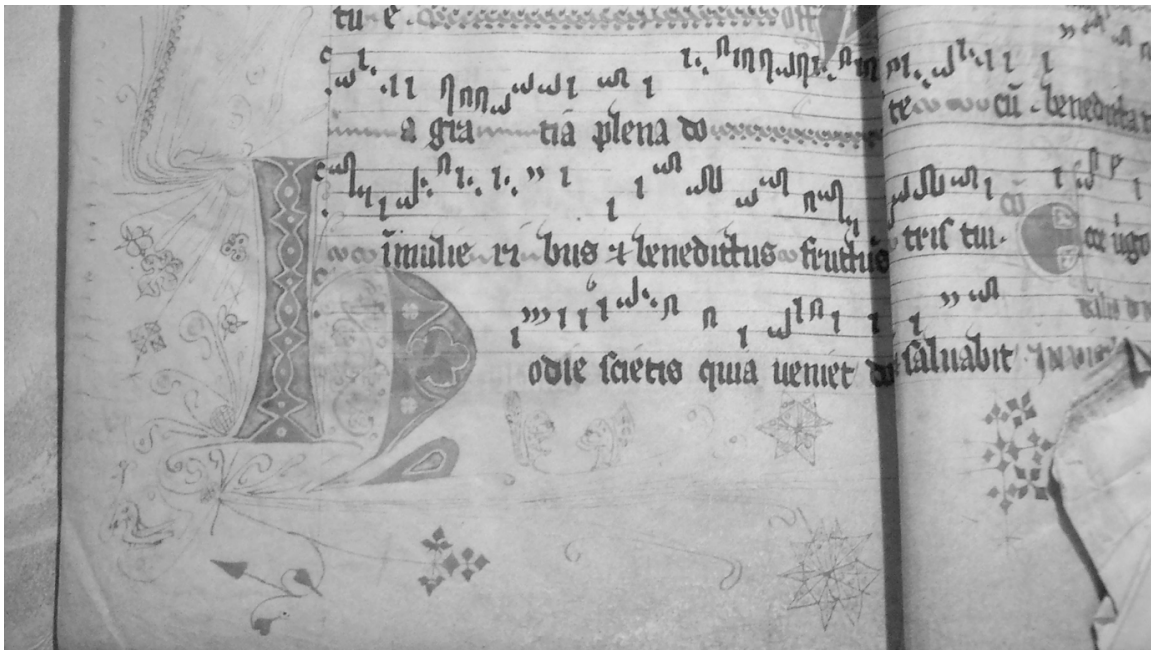 tu e
a gra tia plena do te cū benedicta t
ī mulie ri bus ⁊ benedictus fructus
tris tui. cō Ecce uirgo
Hodie scietis quia ueniet do saluabit